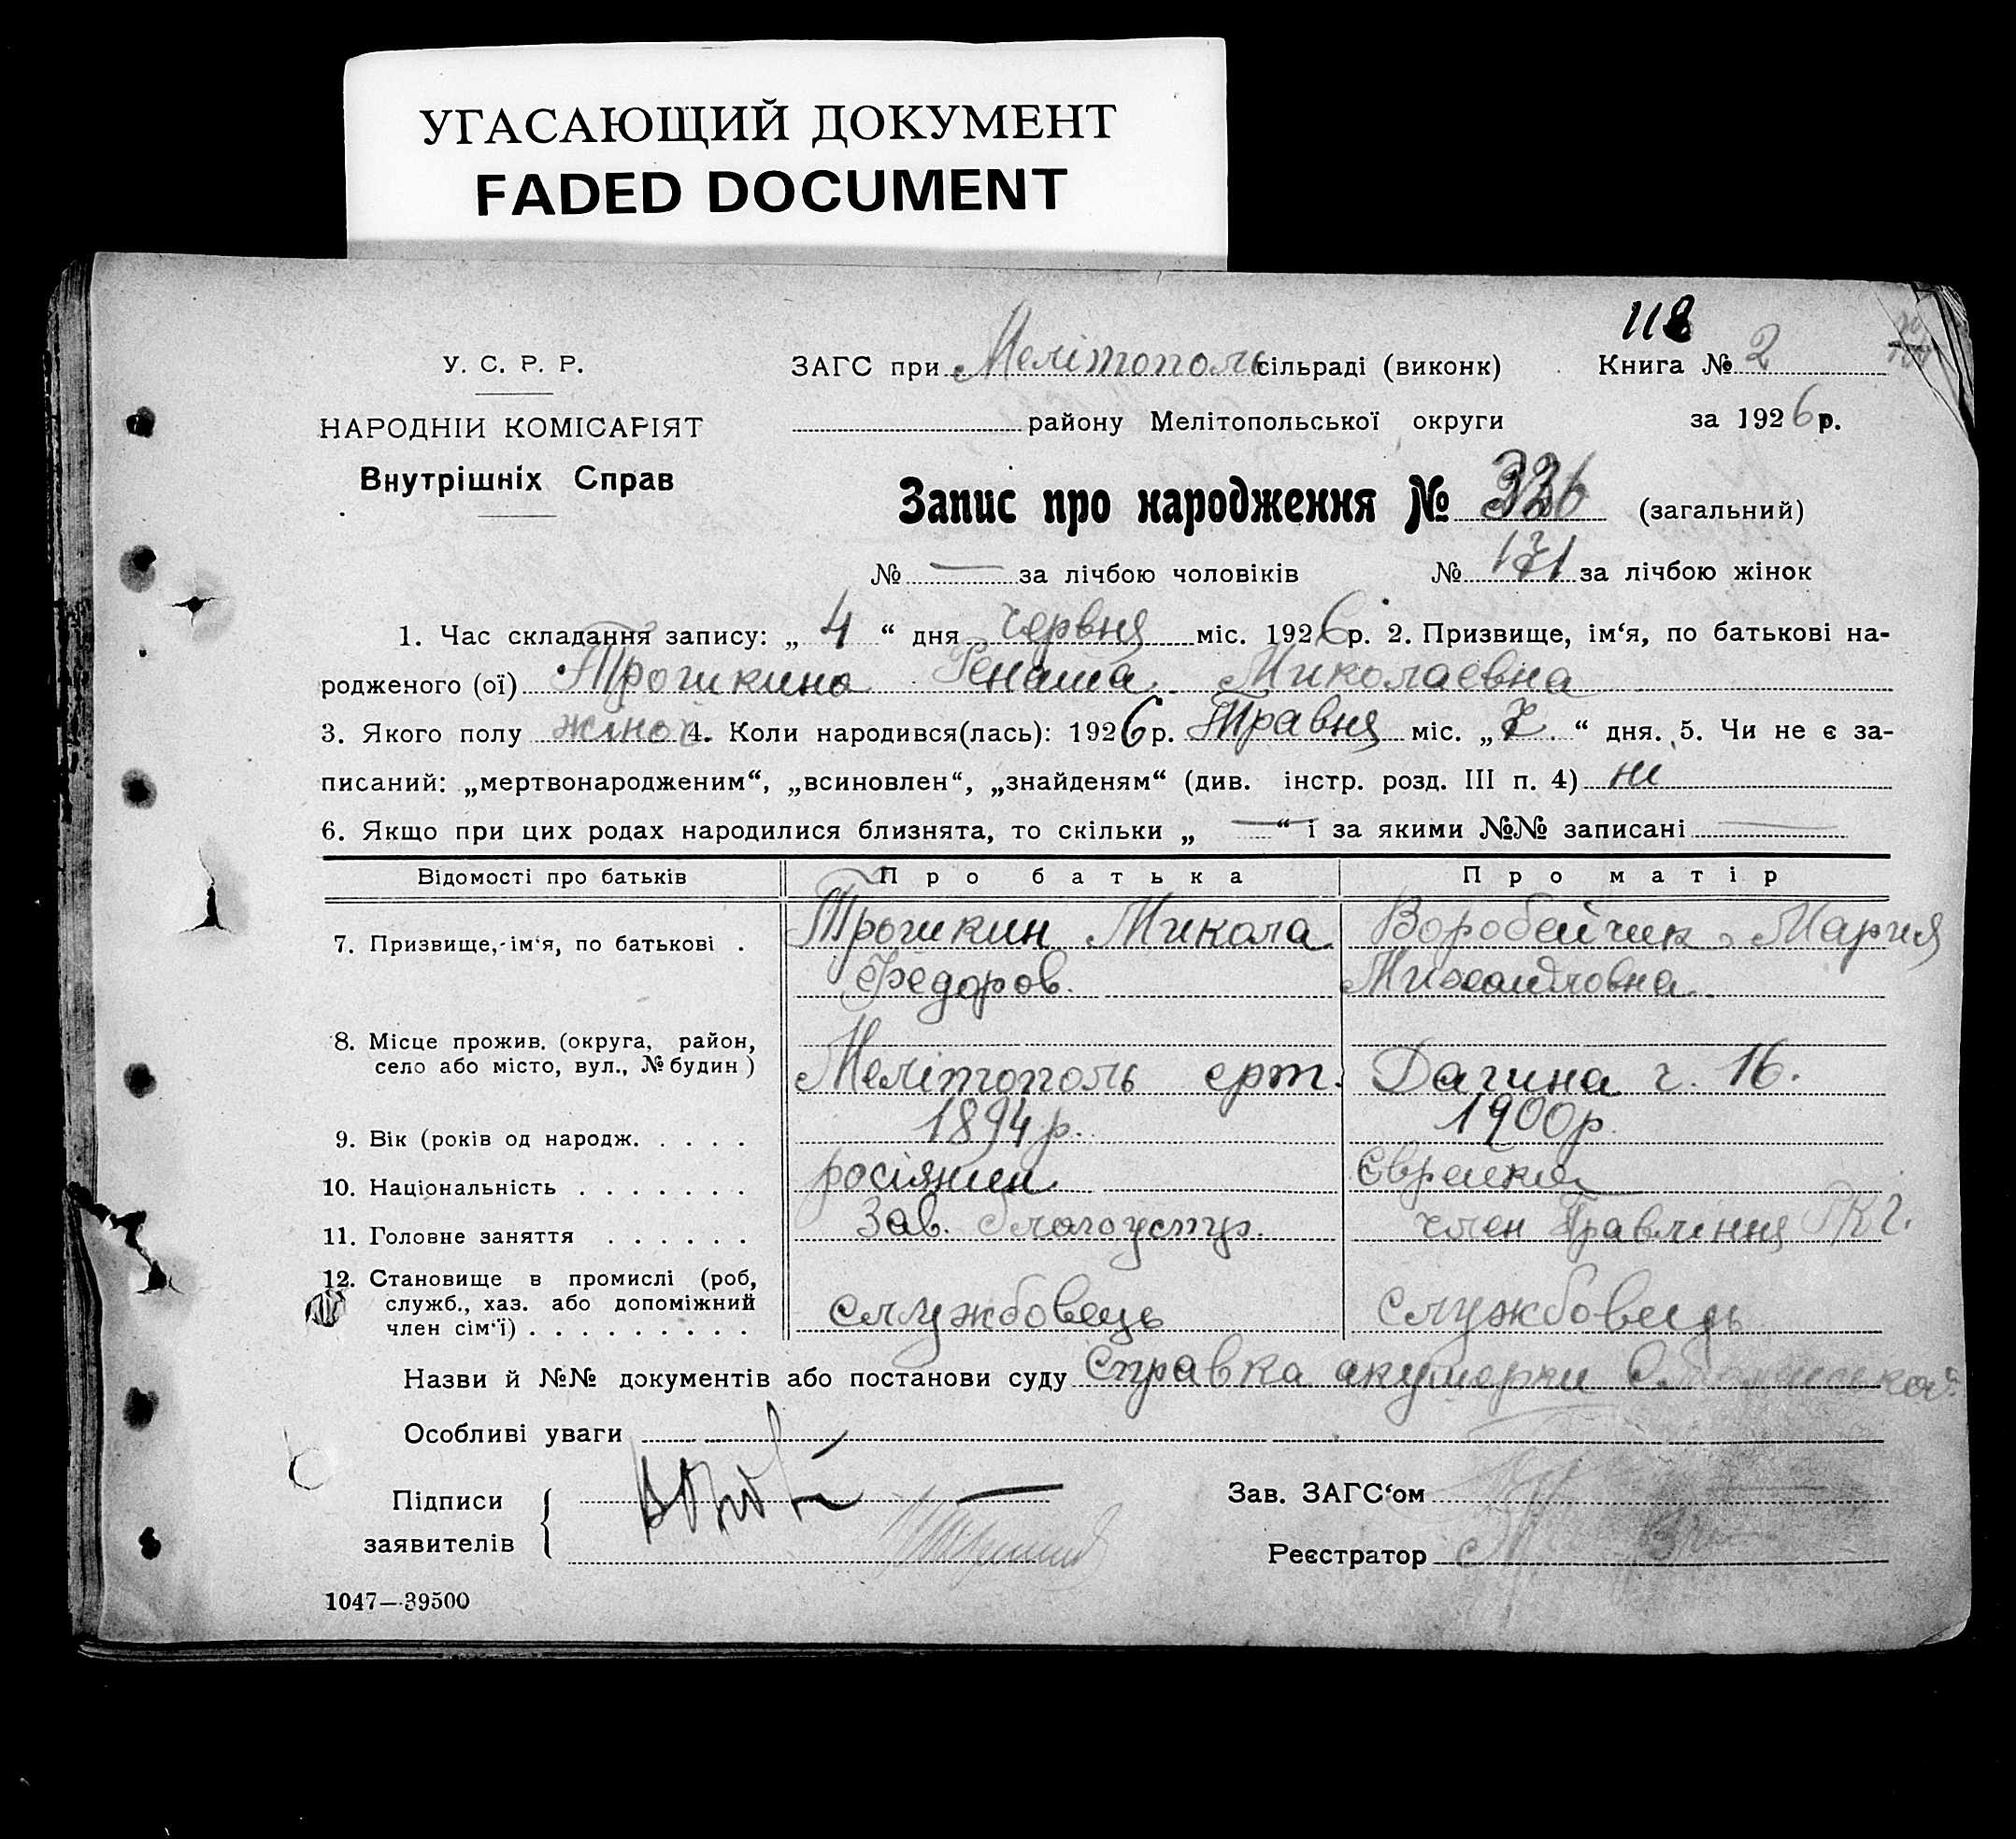 УГАСАЮЩИЙ ДОКУМЕНТ
FADED DOCUMENT
118
У. С. Р. Р.
ЗАГС при Мелітополь сільраді (виконк) Книга № 2
НАРОДНІЙ КОМІСАРІЯТ
району Мелітопольської округи за 1926 р.
Внутрішніх Справ
Запис про народження № 326 (загальний)
№ — за лічбою чоловіків № 171 за лічбою жінок
1. Час складання запису: „ 4 “ дня червня міс. 1926 р. 2. Призвище, ім‘я, по батькові на-
родженого (ої) Трошкина Рената Миколаєвна
3. Якого полу жіноч 4. Коли народився(лась): 1926 р. Травня міс. „ 7 “ дня. 5. Чи не є за-
писаний: „мертвонародженим“, „всиновлен“, „знайденям“ (див. інстр. розд. III п. 4) ні
6. Якщо при цих родах народилися близнята, то скільки „ — “ і за якими №№ записані —
Відомості про батьків Про батька Про матір
7. Призвище, ім‘я, по батькові . Трошкин Микола Воробейчик Мария
Федоров. Михайловна
8. Місце прожив. (округа, район,
село або місто, вул., № будин) Мелітополь Дагина ч. 16.
9. Вік (років од народж. . . . . 1894 р. 1900 р.
10. Національність . . . . . . . росіянин Єврейка
11. Головне заняття . . . . . . Зав. благоустр. член Правління
12. Становище в промислі (роб,
служб., хаз. або допоміжний
член сім‘ї) . . . . . . . . . службовець службовець
Назви й №№ документів або постанови суду Справка акушерки
Особливі уваги
Підписи
заявителів
Зав. ЗАГС‘ом
Реєстратор
1047—39500